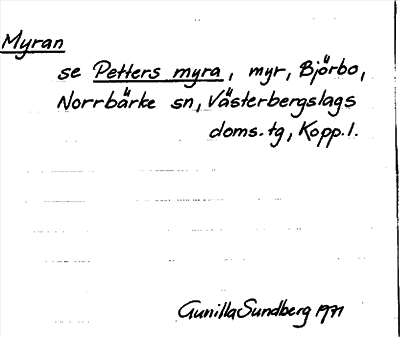 Myran
se Petters myra, myr, Björbo,
Norrbärke sn, Västerbergslags
doms.tg, Kopp.l.
Gunilla Sundberg 1971